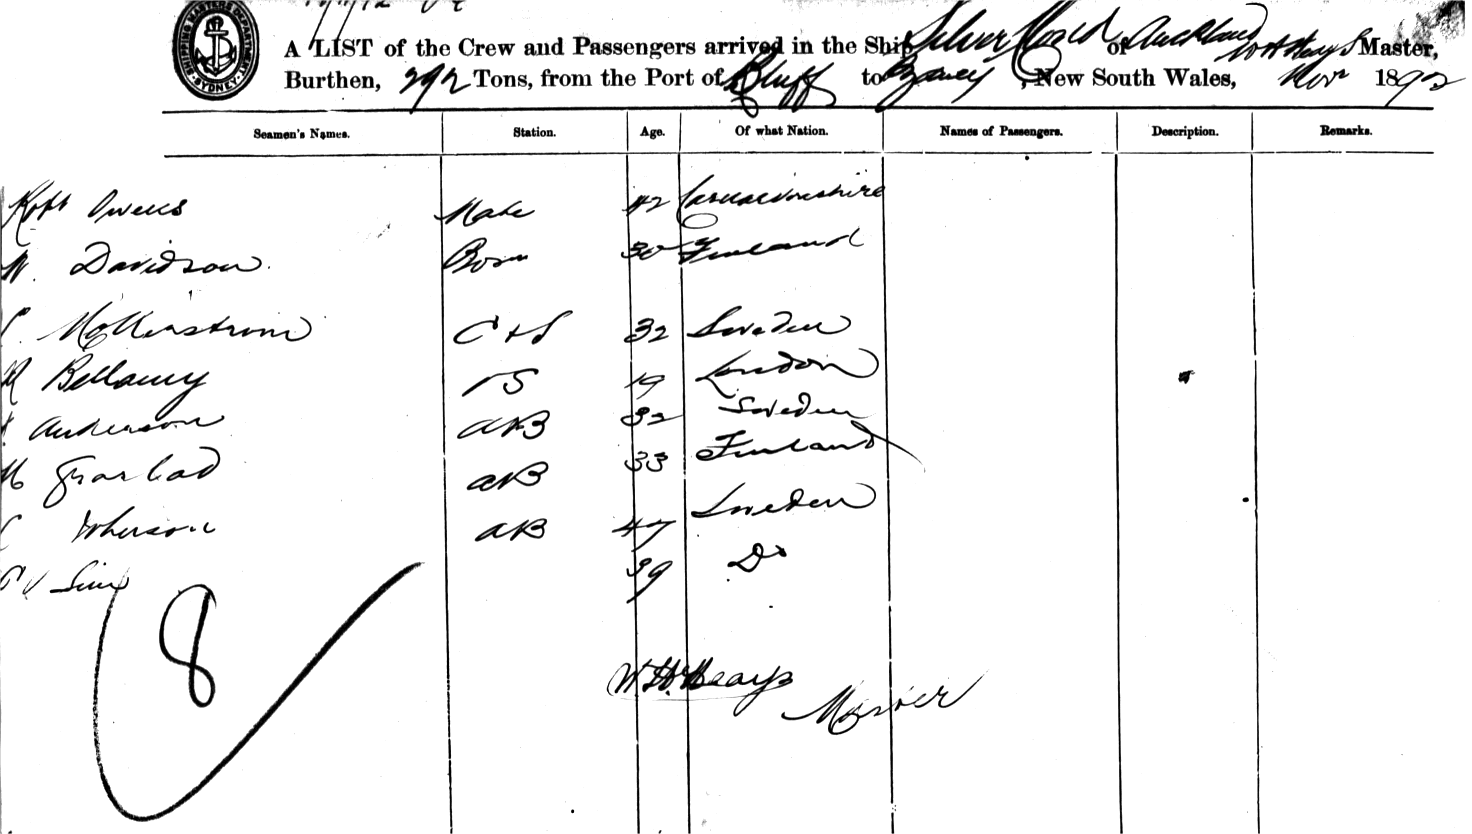 SHIPPING MASTERS DEPARTMENT SYDNEY
A LIST of the Crew and Passengers arrived in the Ship Silver Cloud of Auckland W H Heays Master,
Burthen, 292 Tons, from the Port of Bluff to Sydney, New South Wales, Nov 1892
Seamen's Names. Station. Age. Of what Nation. Names of Passengers. Description. Remarks.
Robt Owens Mate 42 Carnarvonshire
Davidson Bosn 30 Finland
C & S 32 Sweden
Bellamy 19 London
Anderson AB 32 Sweden
AB 33 Finland
AB 47 Sweden
39 Do
8
W. H. Heays
Master